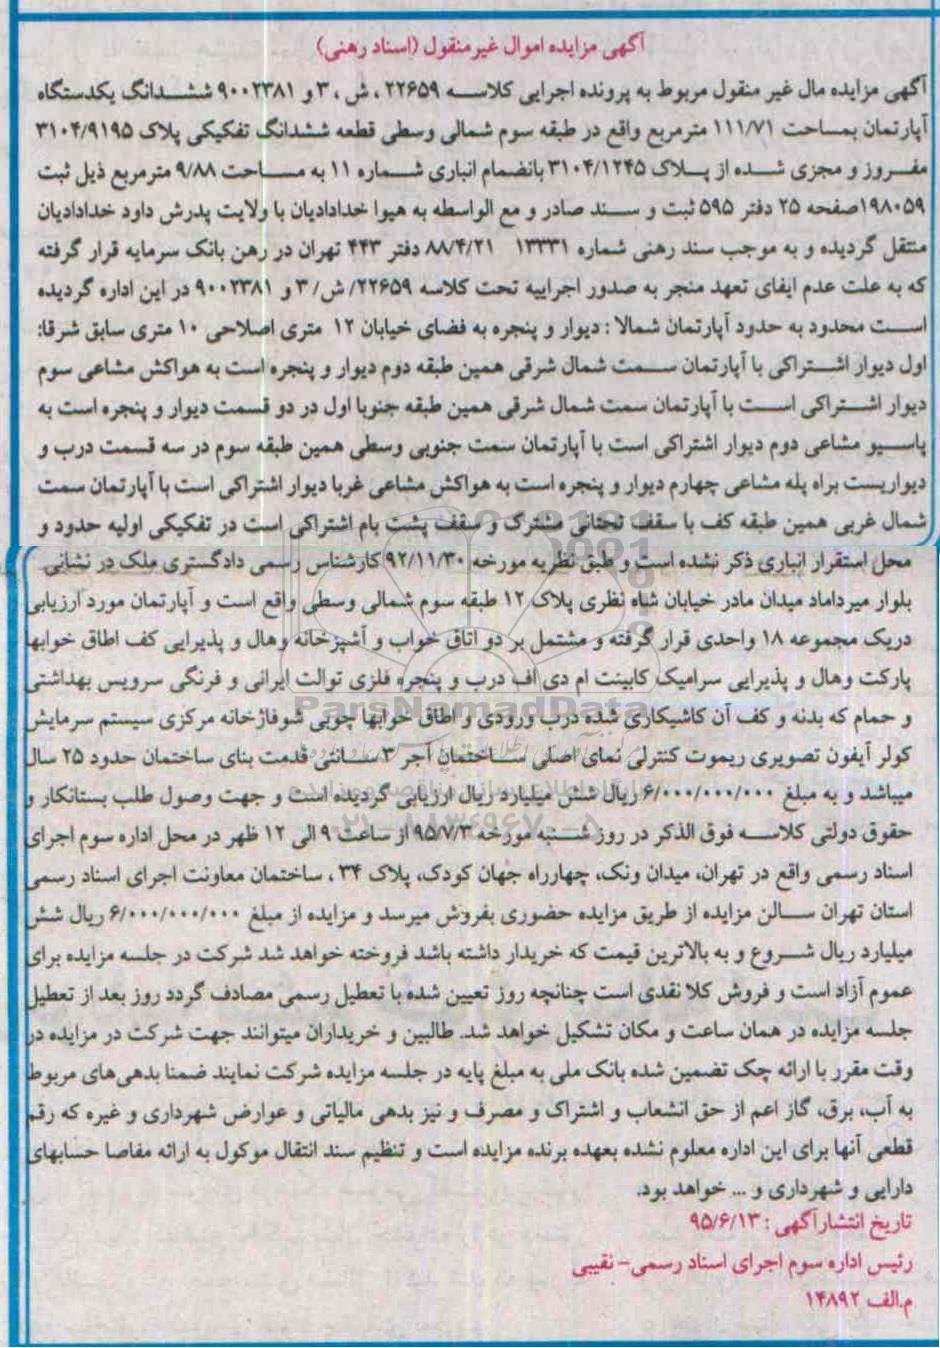 آگهی مزایده اموال غیرمنقول (اسناد رهنی)
آگهی مزایده مال غیر منقول مربوط به پرونده اجرایی کلاسه ۲۲۶۵۹ ، ش ، ۳ و ۹۰۰۲۳۸۱ ششدانگ یکدستگاه
آپارتمان بمساحت ۱۱۱/۷۱ مترمربع واقع در طبقه سوم شمالی وسطی قطعه ششدانگ تفکیکی پلاک ۳۱۰۴/۹۱۹۵
مفروز و مجزی شده از پلاک ۳۱۰۴/۱۲۴۵ بانضمام انباری شماره ۱۱ به مساحت ۹/۸۸ مترمربع ذیل ثبت
۱۹۸۰۵۹صفحه ۲۵ دفتر ۵۹۵ ثبت و سند صادر و مع الواسطه به هیوا خدادادیان با ولایت پدرش داود خدادادیان
منتقل گردیده و به موجب سند رهنی شماره ۱۳۳۳۱ ۸۸/۴/۲۱ دفتر ۴۴۳ تهران در رهن بانک سرمایه قرار گرفته
که به علت عدم ایفای تعهد منجر به صدور اجراییه تحت کلاسه ۲۲۶۵۹/ ش/ ۳ و ۹۰۰۲۳۸۱ در این اداره گردیده
است محدود به حدود آپارتمان شمالا : دیوار و پنجره به فضای خیابان ۱۲ متری اصلاحی ۱۰ متری سابق شرقا:
اول دیوار اشتراکی با آپارتمان سمت شمال شرقی همین طبقه دوم دیوار و پنجره است به هواکش مشاعی سوم
دیوار اشتراکی است با آپارتمان سمت شمال شرقی همین طبقه جنوبا اول در دو قسمت دیوار و پنجره است به
پاسیو مشاعی دوم دیوار اشتراکی است با آپارتمان سمت جنوبی وسطی همین طبقه سوم در سه قسمت درب و
دیواریست براه پله مشاعی چهارم دیوار و پنجره است به هواکش مشاعی غربا دیوار اشتراکی است با آپارتمان سمت
شمال غربی همین طبقه کف با سقف تحتانی مشترک و سقف پشت بام اشتراکی است در تفکیکی اولیه حدود و
محل استقرار انباری ذکر نشده است و طبق نظریه مورخه ۹۲/۱۱/۳۰ کارشناس رسمی دادگستری ملک در نشانی
بلوار میرداماد میدان مادر خیابان شاه نظری پلاک ۱۲ طبقه سوم شمالی وسطی واقع است و آپارتمان مورد ارزیابی
دریک مجموعه ۱۸ واحدی قرار گرفته و مشتمل بر دو اتاق خواب و آشپزخانه وهال و پذیرایی کف اطاق خوابها
پارکت وهال و پذیرایی سرامیک کابینت ام دی اف درب و پنجره فلزی توالت ایرانی و فرنگی سرویس بهداشتی
و حمام که بدنه و کف آن کاشیکاری شده درب ورودی و اطاق خوابها چوبی شوفاژخانه مرکزی سیستم سرمایش
کولر آیفون تصویری ریموت کنترلی نمای اصلی ساختمان آجر ۳ سانتی قدمت بنای ساختمان حدود ۲۵ سال
میباشد و به مبلغ ۶/۰۰۰/۰۰۰/۰۰۰ ریال شش میلیارد ریال ارزیابی گردیده است و جهت وصول طلب بستانکار و
حقوق دولتی کلاسه فوق الذکر در روز شنبه مورخه ۹۵/۷/۳ از ساعت ۹ الی ۱۲ ظهر در محل اداره سوم اجرای
اسناد رسمی واقع در تهران، میدان ونک، چهارراه جهان کودک، پلاک ۳۴ ، ساختمان معاونت اجرای اسناد رسمی
استان تهران سالن مزایده از طریق مزایده حضوری بفروش میرسد و مزایده از مبلغ ۶/۰۰۰/۰۰۰/۰۰۰ ریال شش
میلیارد ریال شروع و به بالاترین قیمت که خریدار داشته باشد فروخته خواهد شد شرکت در جلسه مزایده برای
عموم آزاد است و فروش کلا نقدی است چنانچه روز تعیین شده با تعطیل رسمی مصادف گردد روز بعد از تعطیل
جلسه مزایده در همان ساعت و مکان تشکیل خواهد شد. طالبین و خریداران میتوانند جهت شرکت در مزایده در
وقت مقرر با ارائه چک تضمین شده بانک ملی به مبلغ پایه در جلسه مزایده شرکت نمایند ضمنا بدهی‌های مربوط
به آب، برق، گاز اعم از حق انشعاب و اشتراک و مصرف و نیز بدهی مالیاتی و عوارض شهرداری و غیره که رقم
قطعی آنها برای این اداره معلوم نشده بعهده برنده مزایده است و تنظیم سند انتقال موکول به ارائه مفاصا حسابهای
دارایی و شهرداری و ... خواهد بود.
تاریخ انتشارآگهی : ۹۵/۶/۱۳
رئیس اداره سوم اجرای اسناد رسمی- نقیبی
م.الف ۱۴۸۹۲
ParsNamadData